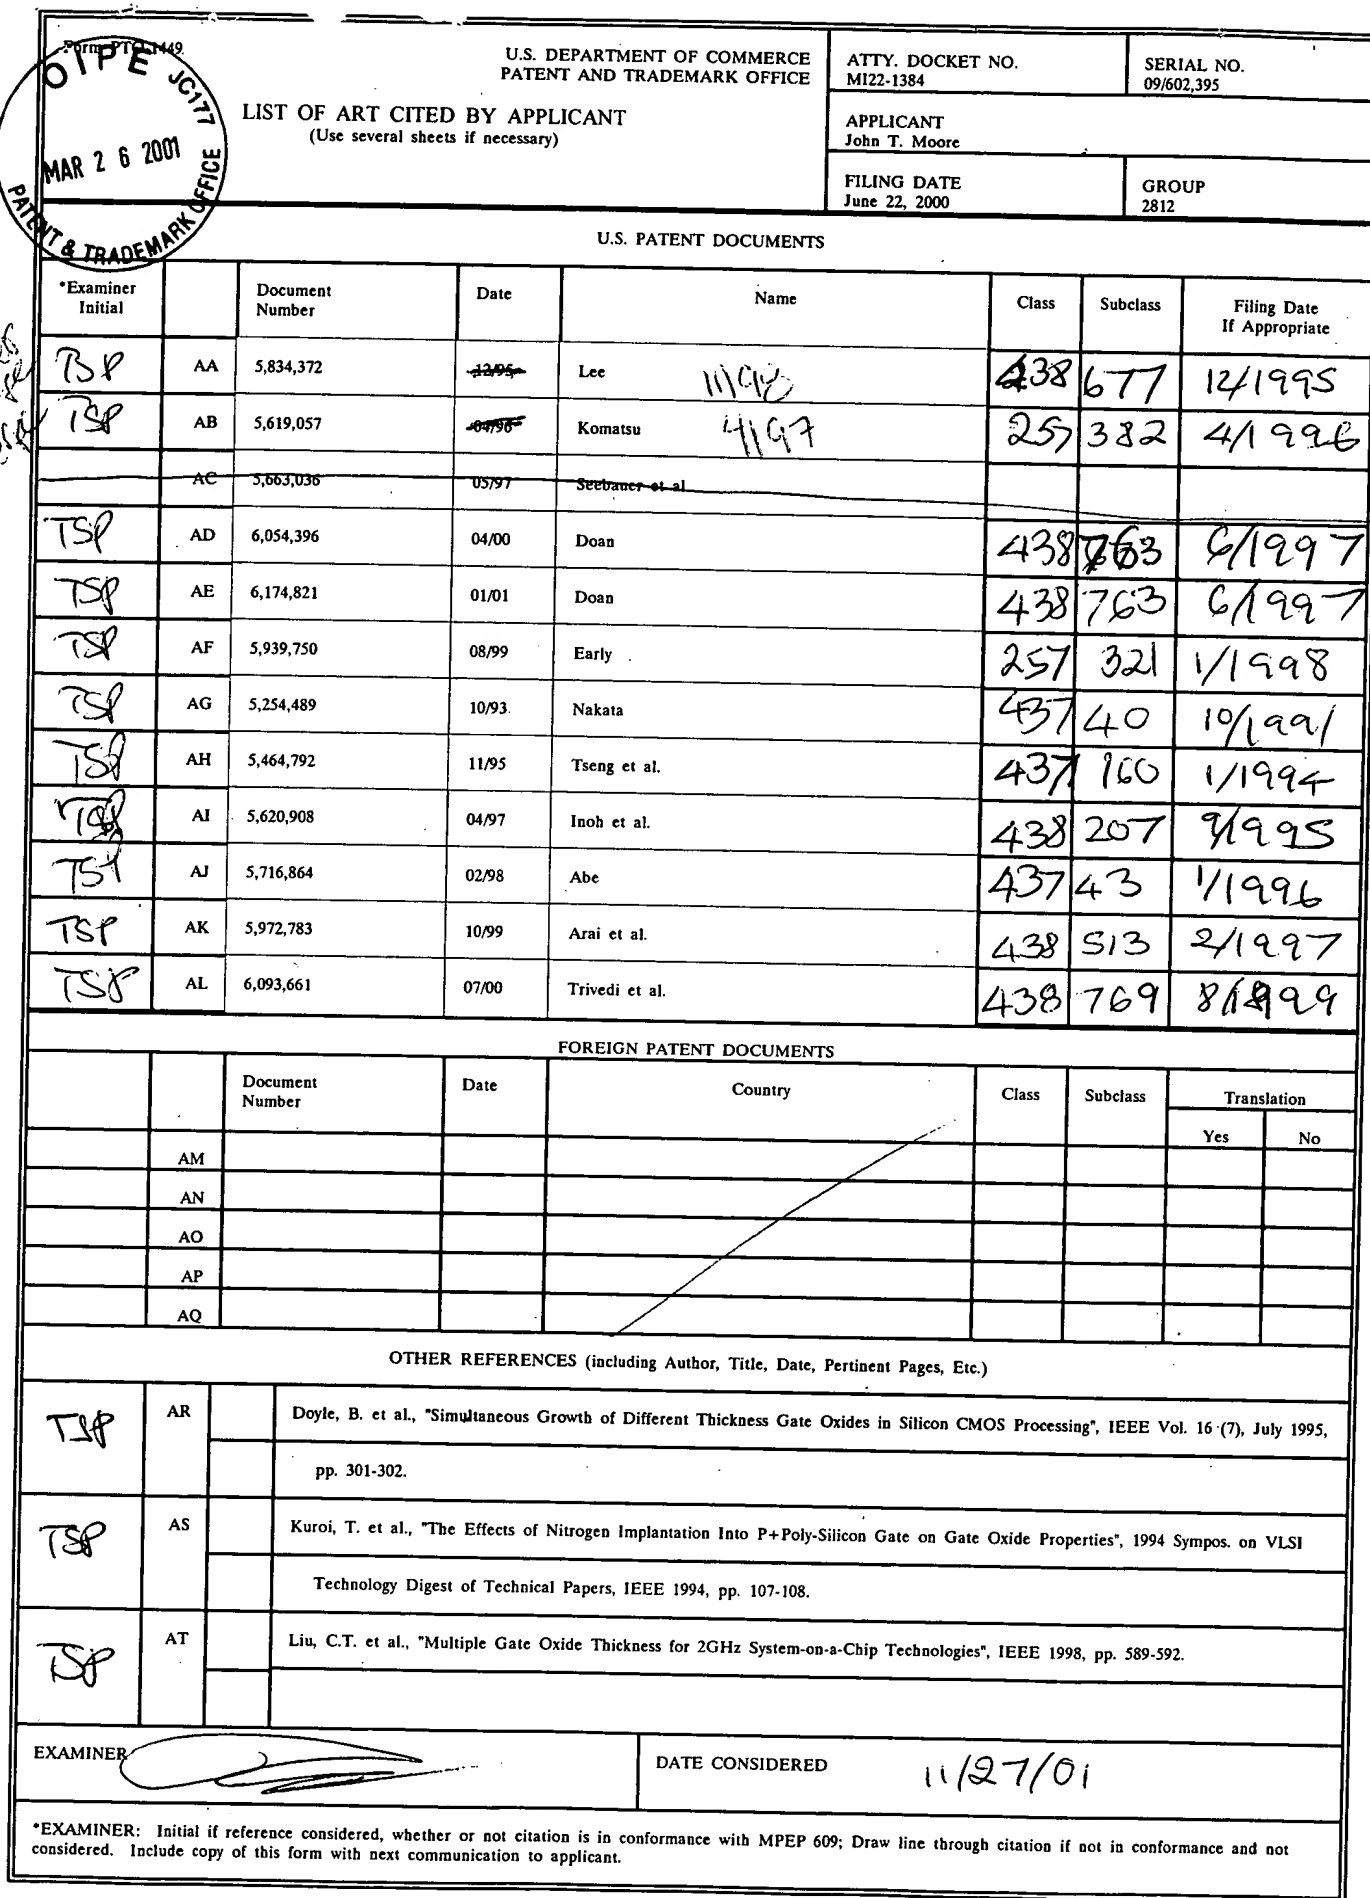 Form PTO-1449
OIPE JC177
MAR 26 2001
PATENT & TRADEMARK OFFICE
U.S. DEPARTMENT OF COMMERCE
PATENT AND TRADEMARK OFFICE
LIST OF ART CITED BY APPLICANT
(Use several sheets if necessary)
ATTY. DOCKET NO.
MI22-1384
SERIAL NO.
09/602,395
APPLICANT
John T. Moore
FILING DATE
June 22, 2000
GROUP
2812
U.S. PATENT DOCUMENTS
*Examiner Initial Document Number Date Name Class Subclass Filing Date If Appropriate
TSP AA 5,834,372 12/95 Lee 11/98 438 677 12/1995
TSP AB 5,619,057 04/96 Komatsu 4/97 257 382 4/1996
AC 5,663,036 05/97 Seebauer et al
TSP AD 6,054,396 04/00 Doan 438 763 6/1997
TSP AE 6,174,821 01/01 Doan 438 763 6/1997
TSP AF 5,939,750 08/99 Early 257 321 1/1998
TSP AG 5,254,489 10/93 Nakata 437 40 10/1991
TSP AH 5,464,792 11/95 Tseng et al. 437 160 1/1994
TSP AI 5,620,908 04/97 Inoh et al. 438 207 9/1995
TSP AJ 5,716,864 02/98 Abe 437 43 1/1996
TSP AK 5,972,783 10/99 Arai et al. 438 513 2/1997
TSP AL 6,093,661 07/00 Trivedi et al. 438 769 8/1999
FOREIGN PATENT DOCUMENTS
Document Number Date Country Class Subclass Translation
Yes No
AM
AN
AO
AP
AQ
OTHER REFERENCES (including Author, Title, Date, Pertinent Pages, Etc.)
TSP AR Doyle, B. et al., "Simultaneous Growth of Different Thickness Gate Oxides in Silicon CMOS Processing", IEEE Vol. 16 (7), July 1995,
pp. 301-302.
TSP AS Kuroi, T. et al., "The Effects of Nitrogen Implantation Into P+Poly-Silicon Gate on Gate Oxide Properties", 1994 Sympos. on VLSI
Technology Digest of Technical Papers, IEEE 1994, pp. 107-108.
TSP AT Liu, C.T. et al., "Multiple Gate Oxide Thickness for 2GHz System-on-a-Chip Technologies", IEEE 1998, pp. 589-592.
EXAMINER DATE CONSIDERED 11/27/01
*EXAMINER: Initial if reference considered, whether or not citation is in conformance with MPEP 609; Draw line through citation if not in conformance and not
considered. Include copy of this form with next communication to applicant.